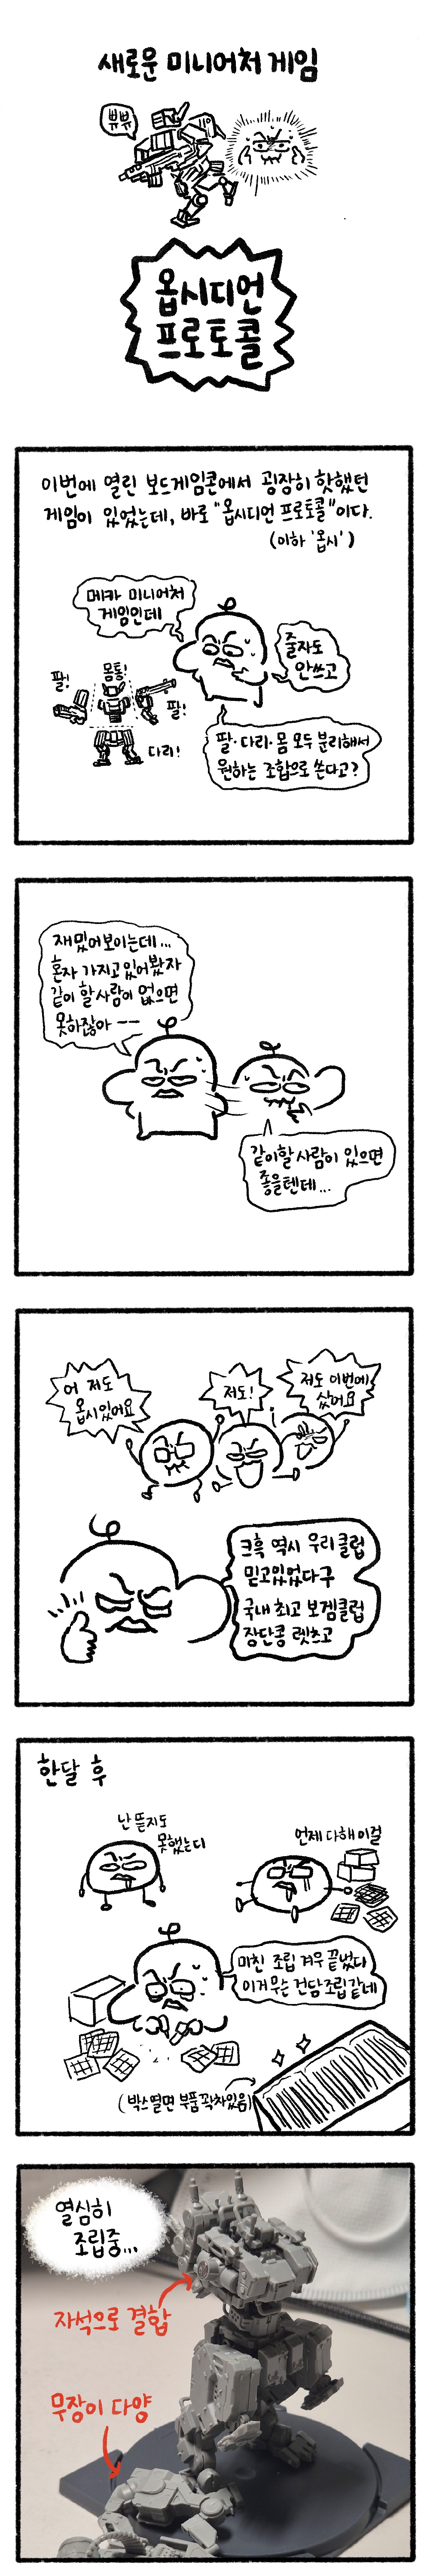 새로운 미니어처 게임
쀼쀼
옵시디언
프로토콜
이번에 열린 보드게임콘에서 굉장히 핫했던
게임이 있었는데, 바로 "옵시디언 프로토콜"이다.
(이하 '옵시')
메카 미니어처
게임인데
줄자도
안쓰고
팔!
몸통!
팔!
다리!
팔·다리·몸 모두 분리해서
원하는 조합으로 쓴다고?
재밌어보이는데...
혼자 가지고 있어봤자
같이 할 사람이 없으면
못하잖아 ——
같이할 사람이 있으면
좋을텐데...
어 저도
옵시있어요
저도!
저도 이번에
샀어요
크흑 역시 우리클럽
믿고있었다구
국내 최고 보겜클럽
장단콩 렛츠고
한달 후
난 뜯지도
못했는디
언제 다해 이걸
미친 조립 겨우 끝냈다
이거 무슨 건담조립같네
(박스떨면 부품 꽉차있음)
열심히
조립중...
자석으로 결합
무장이 다양